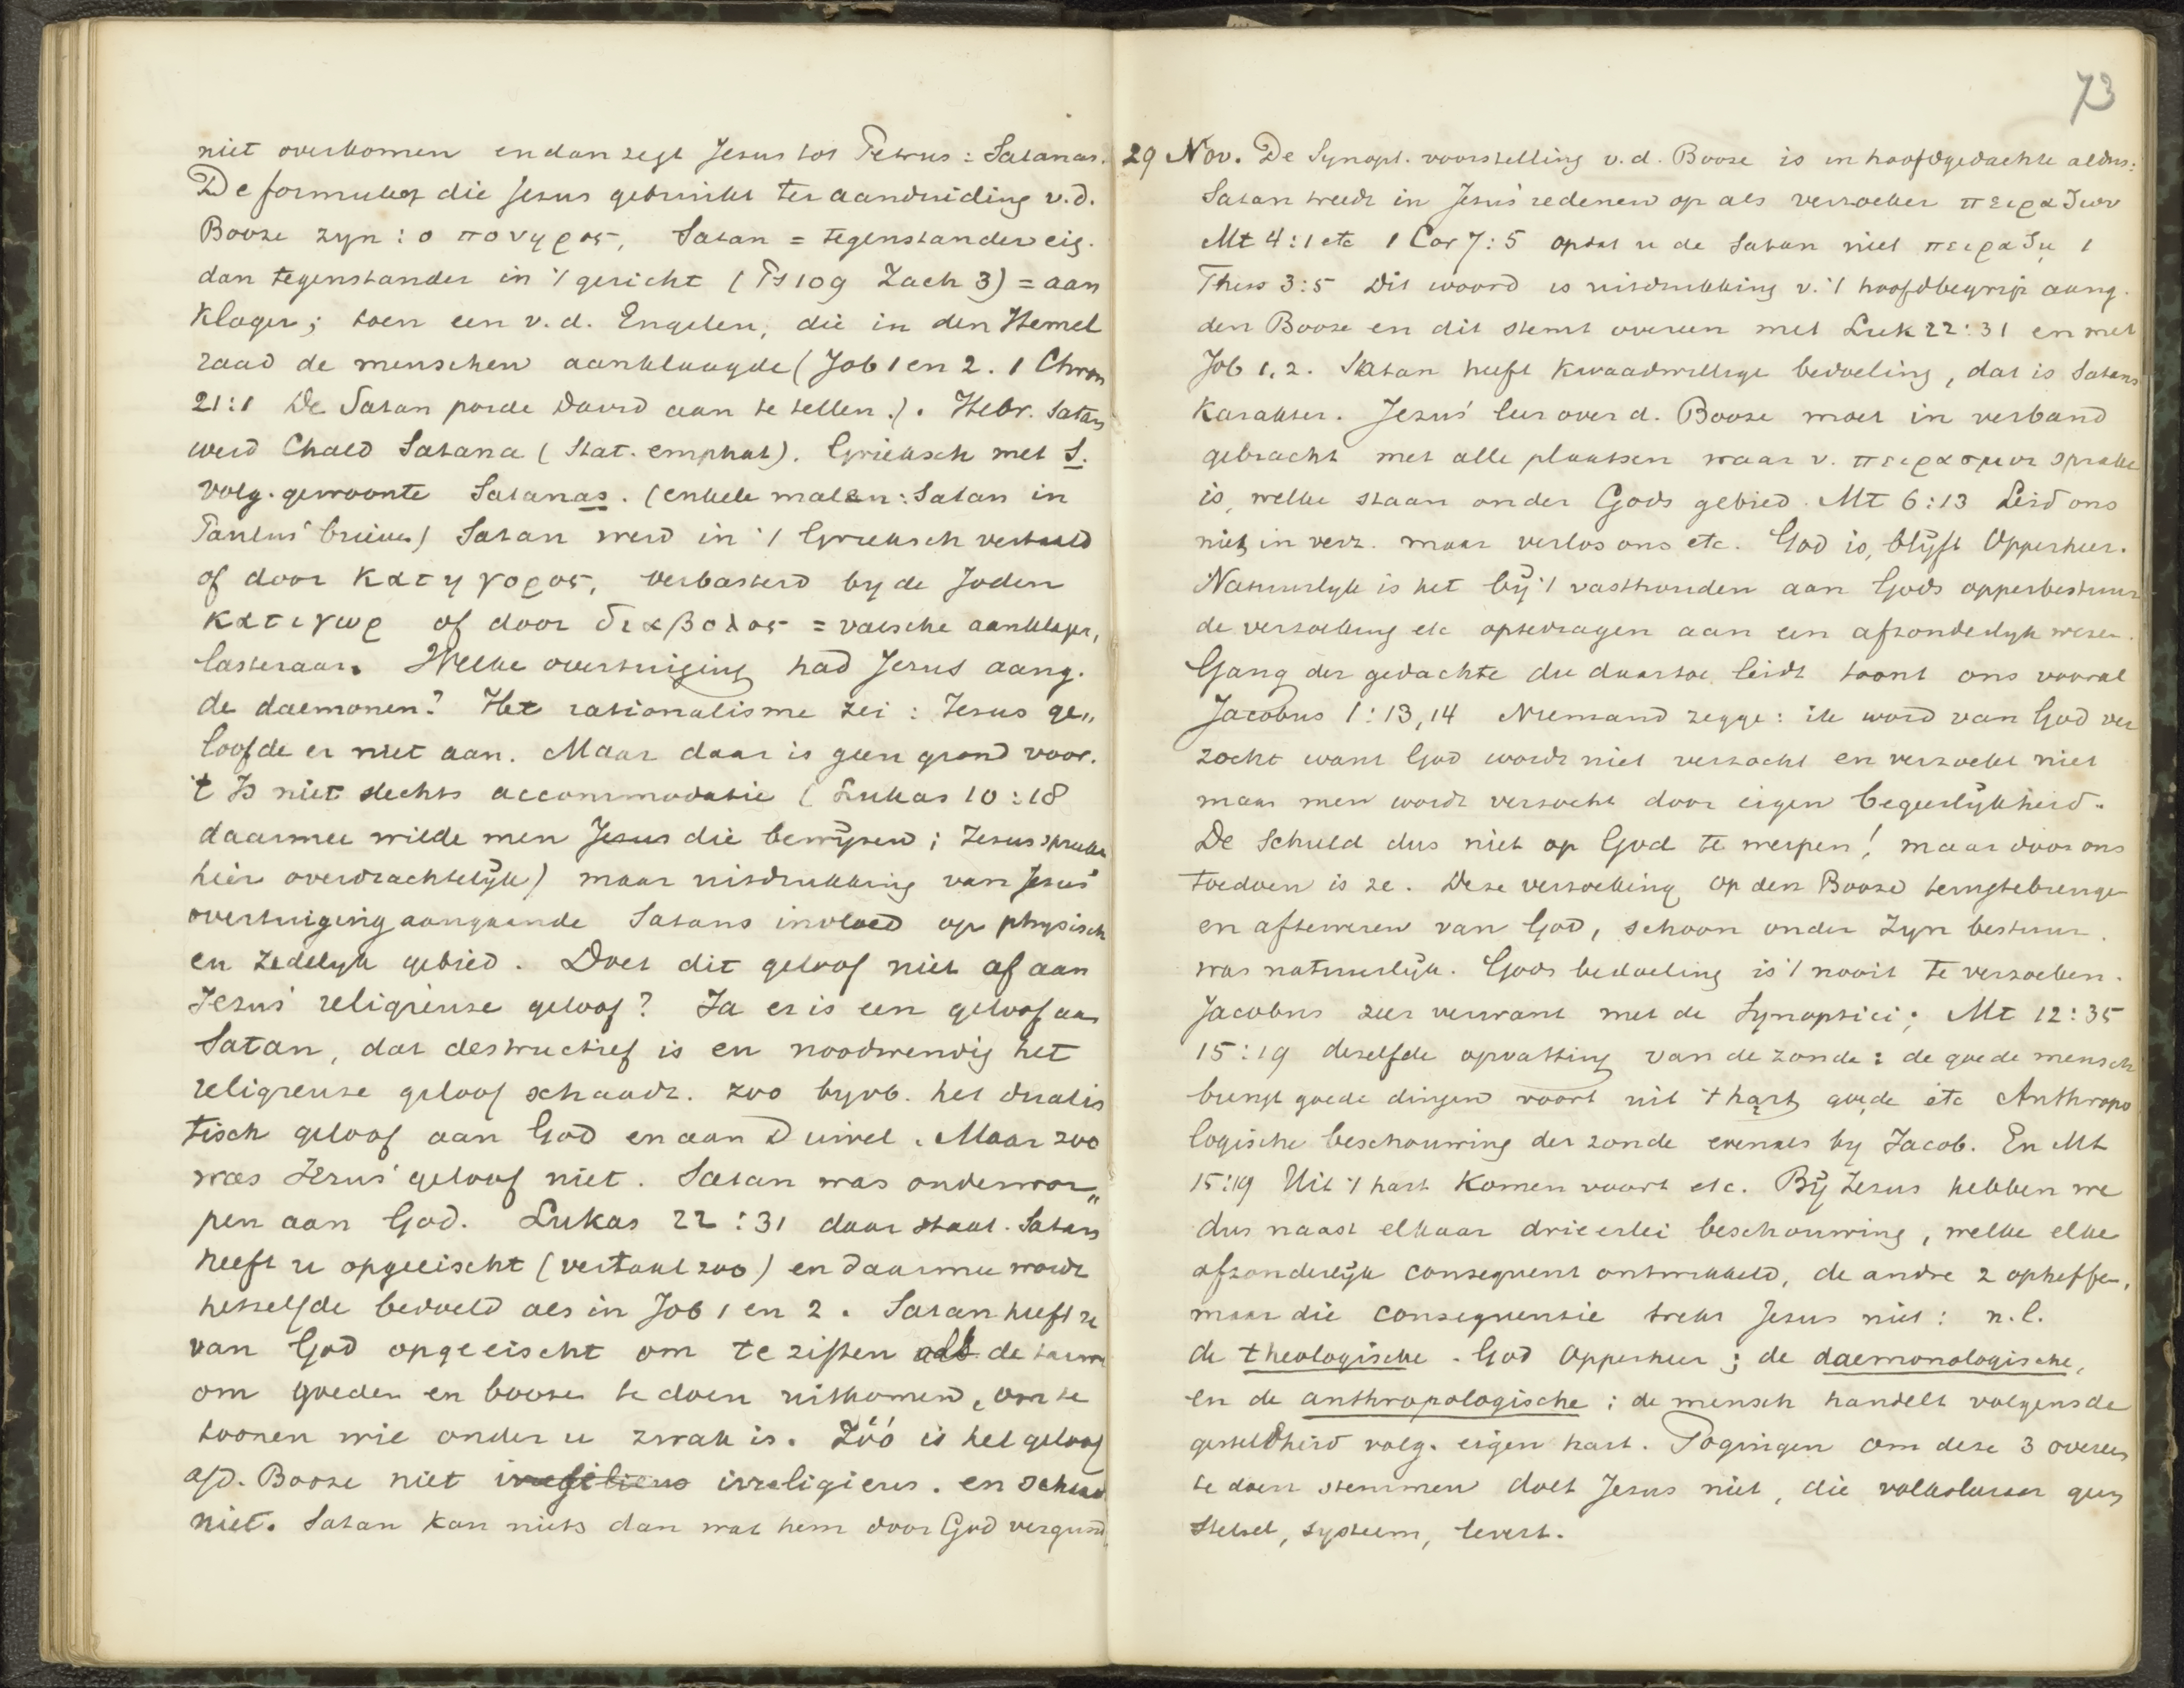 niet overkomen en dan zegt Jezus tot Petrus: Satanas.
De formules die Jezus gebruikt ter aanduiding v.d.
Booze zyn: ο πονηρος, Satan = tegenstander eig.
dan tegenstander in 't gericht (Ps 109 Zach 3) = aan
klager; toen een v.d. Engelen, die in den Hemel
raad de menschen aanklaagde (Job 1 en 2. 1 Chron
21:1 De Satan porde David aan te tellen.). Hebr. Satan
werd Chald Satana (Stat. emphat). Grieksch met S.
volg. gewoonte Satanas. (enkele malen: Satan in
Paulus' brieven) Satan werd in 't Grieksch vertaald
of door κατηγορος, verbasterd by de Joden
κατιγωρ of door διαβολος = valsche aanklager,
lasteraar. Welke overtuiging had Jezus aang.
de daemonen? Het rationalisme zei: Jezus ge„
loofde er niet aan. Maar daar is geen grond voor.
't Is niet slechts accommodatie (Lukas 10:18
daarmee wilde men Jezus die bewijzen; Jezus sprake
hier overdrachtelijk) maar uitdrukking van Jezus'
overtuiging aangaande Satans invloed op physisch
en zedelyk gebied. Doet dit geloof niet af aan
Jezus' religieuze geloof? Ja er is een geloof aan
Satan, dat destructief is en noodwendig het
religieuze geloof schaadt. Zoo byvb. het dualis
tisch geloof aan God en aan Duivel. Maar zoo
was Jezus' geloof niet. Satan was onderwor„
pen aan God. Lukas 22:31 daar staat. Satan
heeft u opgeëischt (vertaal zoo) en daarmee wordt
hetzelfde bedoeld als in Job 1 en 2. Satan heeft ze
van God opgeëischt om te ziften als de tarwe
om goeden en boozen te doen uitkomen, om te
toonen wie onder u zwak is. Zóó is het geloof
a/d. Booze niet irreligieus. en schaad
niet. Satan kan niets dan wat hem door God vergund
73
29 Nov. De Synopt. voorstelling v.d. Booze is in hoofdgedachte aldus:
Satan treedt in Jezus' redenen op als verzoeker πειραζων
Mt 4:1 etc 1 Cor 7:5 opdat u de Satan niet πειραζη 1
Thess 3:5 Dit woord is uitdrukking v. 't hoofdbegrip aang.
den Booze en dit stemt overeen met Luk 22:31 en met
Job 1, 2. Satan heeft kwaadwillige bedoeling, dat is Satans
karakter. Jezus' leer over d. Booze moet in verband
gebracht met alle plaatsen waar v. πειρασμος sprake
is, welke staan onder Gods gebied. Mt 6:13 Leid ons
niet in verz. maar verlos ons etc. God is, blijft Opperheer.
Natuurlyk is het bij 't vasthouden aan Gods opperbestuur
de verzoeking etc optedragen aan een afzonderlyk wezen.
Gang der gedachte die daartoe leidt toont ons vooral
Jacobus 1:13,14 Niemand zegge: ik word van God ver
zocht want God wordt niet verzocht en verzoekt niet
maar men wordt verzocht door eigen begeerlijkheid.
De schuld dus niet op God te werpen! maar door ons
toedoen is ze. Deze verzoeking op den Booze terugtebrengen
en afteweren van God, schoon onder Zyn bestuur.
was natuurlijk. Gods bedoeling is 't nooit te verzoeken.
Jacobus zeer verwant met de Synoptici; Mt 12:35
15:19 dezelfde opvatting van de zonde: de goede mensch
brengt goede dingen voort uit 't hart, goede etc Anthropo
logische beschouwing der zonde evenals by Jacob. En Mt
15:19 Uit 't hart komen voort etc. Bij Jezus hebben we
dus naast elkaar drieerlei beschouwing, welke elke
afzonderlijk consequent ontwikkeld, de andre 2 opheffen,
maar die consequentie trekt Jezus niet: n.l.
de theologische. God Opperheer; de daemonologische,
en de anthropologische; de mensch handelt volgens de
gesteldheid volg. eigen hart. Pogingen om deze 3 overeen
te doen stemmen doet Jezus niet, die volksleeraar geen
stelsel, systeem, levert.